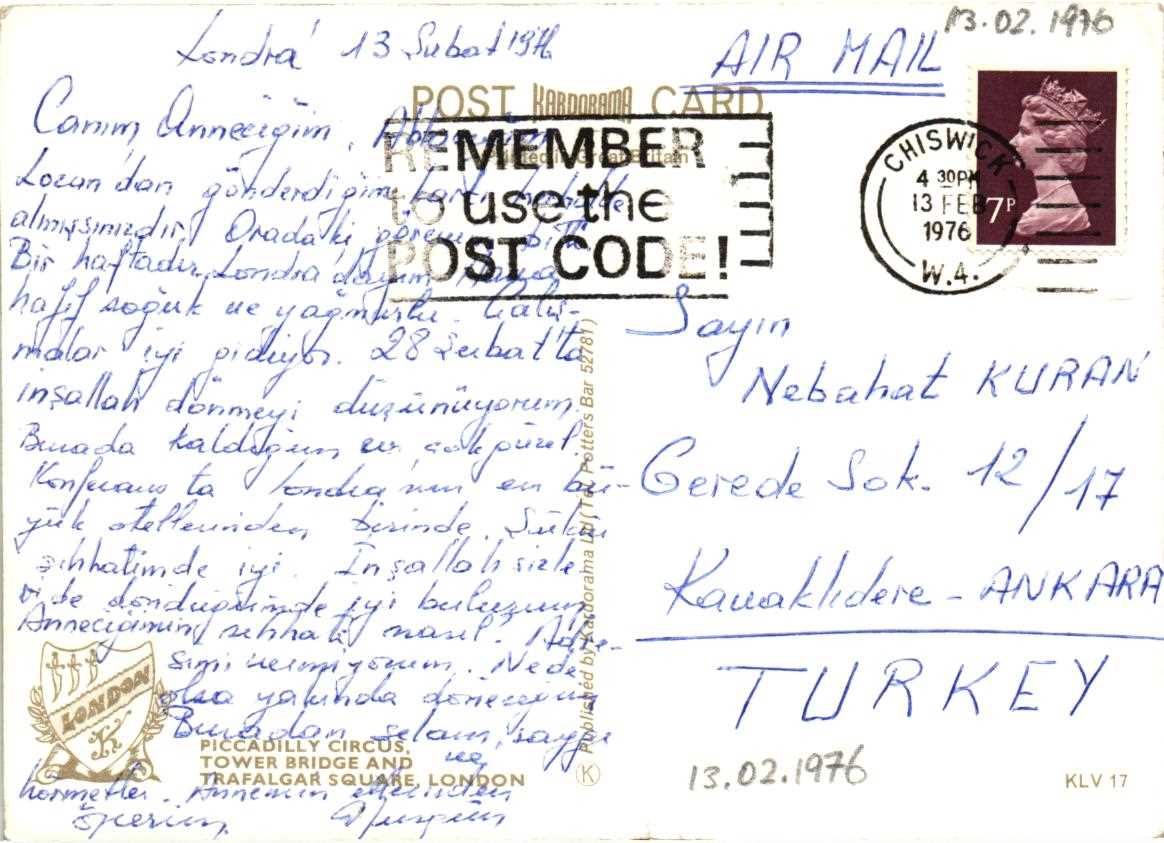 13.02.1976
Londra 13 Şubat 1976
AIR MAIL
POST KARDORAMA CARD
Printed in Great Britain
REMEMBER
to use the
POST CODE!
CHISWICK
4 30PM
13 FEB
1976
W.4.
7P
Canım Anneciğim, Ablacığım
Lozan'dan gönderdiğim kartı
almışsınızdır. Oradaki görev bitti
Bir haftadır Londra'dayım Hava
hafif soğuk ve yağmurlu. Çalış-
malar iyi gidiyor. 28 Şubat'ta
inşallah dönmeyi düşünüyorum.
Burada kaldığım ev çok güzel.
Konferans ta Londra'nın en bü-
yük otellerinden birinde. Şükür
sıhhatimde iyi. İnşallah sizle
ri de döndüğümde iyi bulurum
Anneciğimin sıhhati nasıl? Adre-
simi vermiyorum. Nede
olsa yakında döneceğim
Buradan selam, saygı
ve
hörmetler. Annemin ellerinden
öperim.
Sayın
Nebahat KURAN
Gerede Sok. 12/17
Kavaklıdere - ANKARA
TURKEY
LONDON
PICCADILLY CIRCUS,
TOWER BRIDGE AND
TRAFALGAR SQUARE, LONDON
Published by Kardorama Ltd (Tel. Potters Bar 52781)
K
13.02.1976
KLV 17